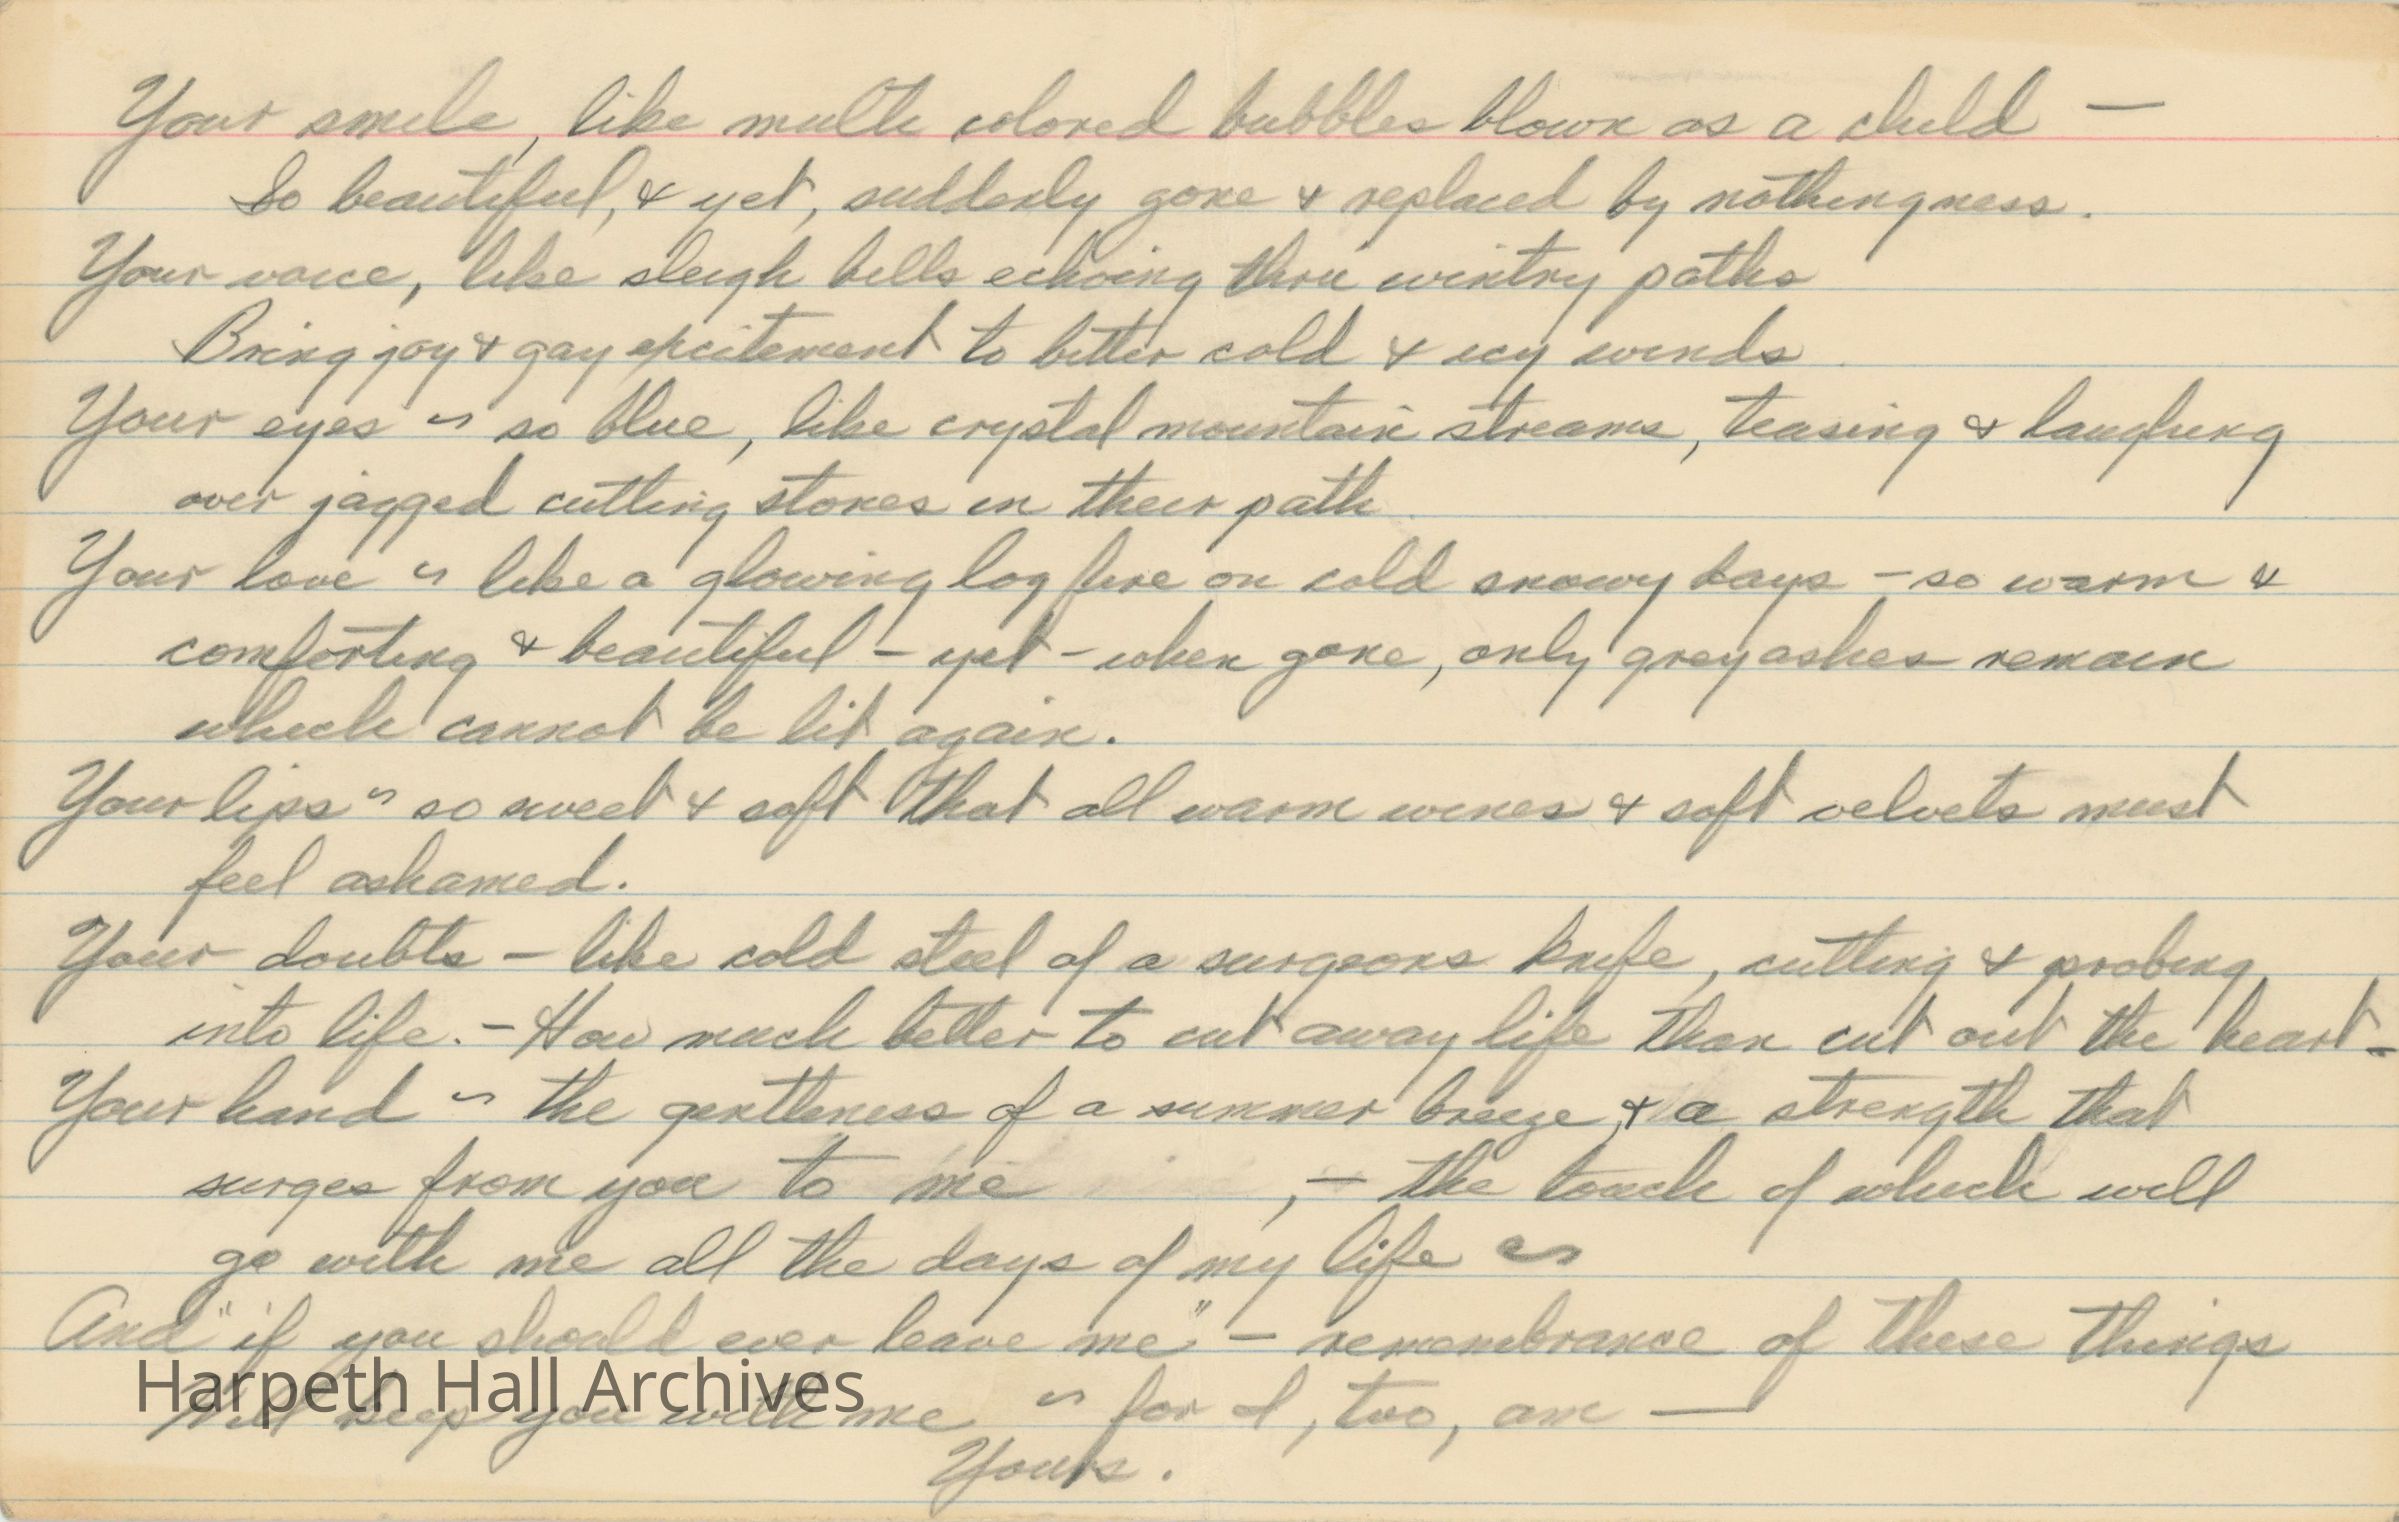 Your smile, like multi colored bubbles blown as a child —
So beautiful, & yet, suddenly gone & replaced by nothingness.
Your voice, like sleigh bells echoing thru wintry paths
Bring joy & gay excitement to bitter cold & icy winds
Your eyes ~ so blue, like crystal mountain streams, teasing & laughing
over jagged cutting stones in their path
Your love ~ like a glowing log fire on cold snowy days – so warm &
comforting & beautiful – yet – when gone, only grey ashes remain
which cannot be lit again.
Your lips ~ so sweet & soft that all warm wines & soft velvets must
feel ashamed.
Your doubts – like cold steel of a surgeons knife, cutting & probing
into life. – How much better to cut away life than cut out the heart –
Your hand ~ the gentleness of a summer breeze, & a strength that
surges from you to me , – the touch of which will
go with me all the days of my life ~
And "if you should ever leave me" – remembrance of these things
Will keep you with me ~ for I, too, am —
Yours.
Harpeth Hall Archives